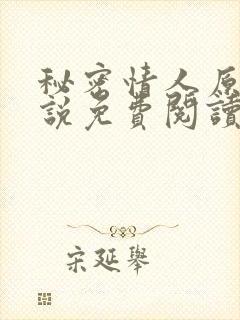 秘密情人原
說免費閱讀
宋延舉